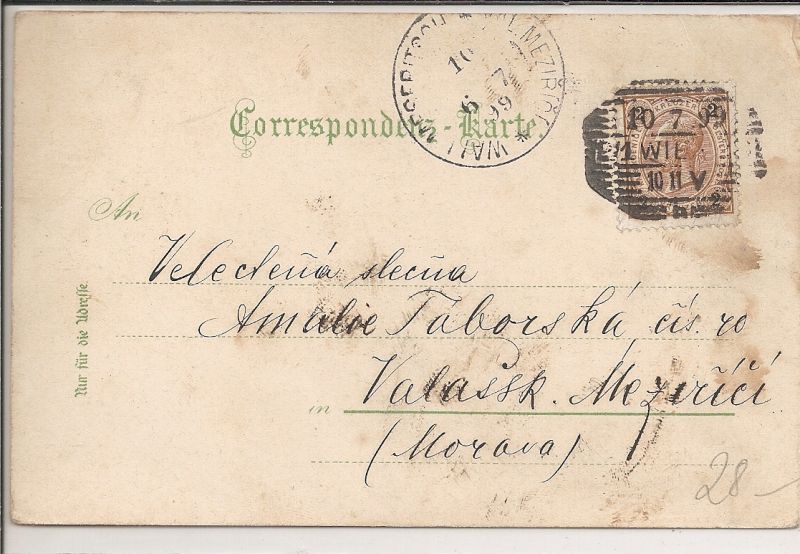 WALL. MESERITSCH * VAL. MEZIŘÍČÍ *
10 7
6 99
Correspondenz-Karte.
2 2
10 7 99
1/1 WIEN
10 11 V
An
Velectěná slečna
Amalie Táborská čís. 70
Nur für die Adresse
in Valašsk. Meziříčí
(Morava)
28-